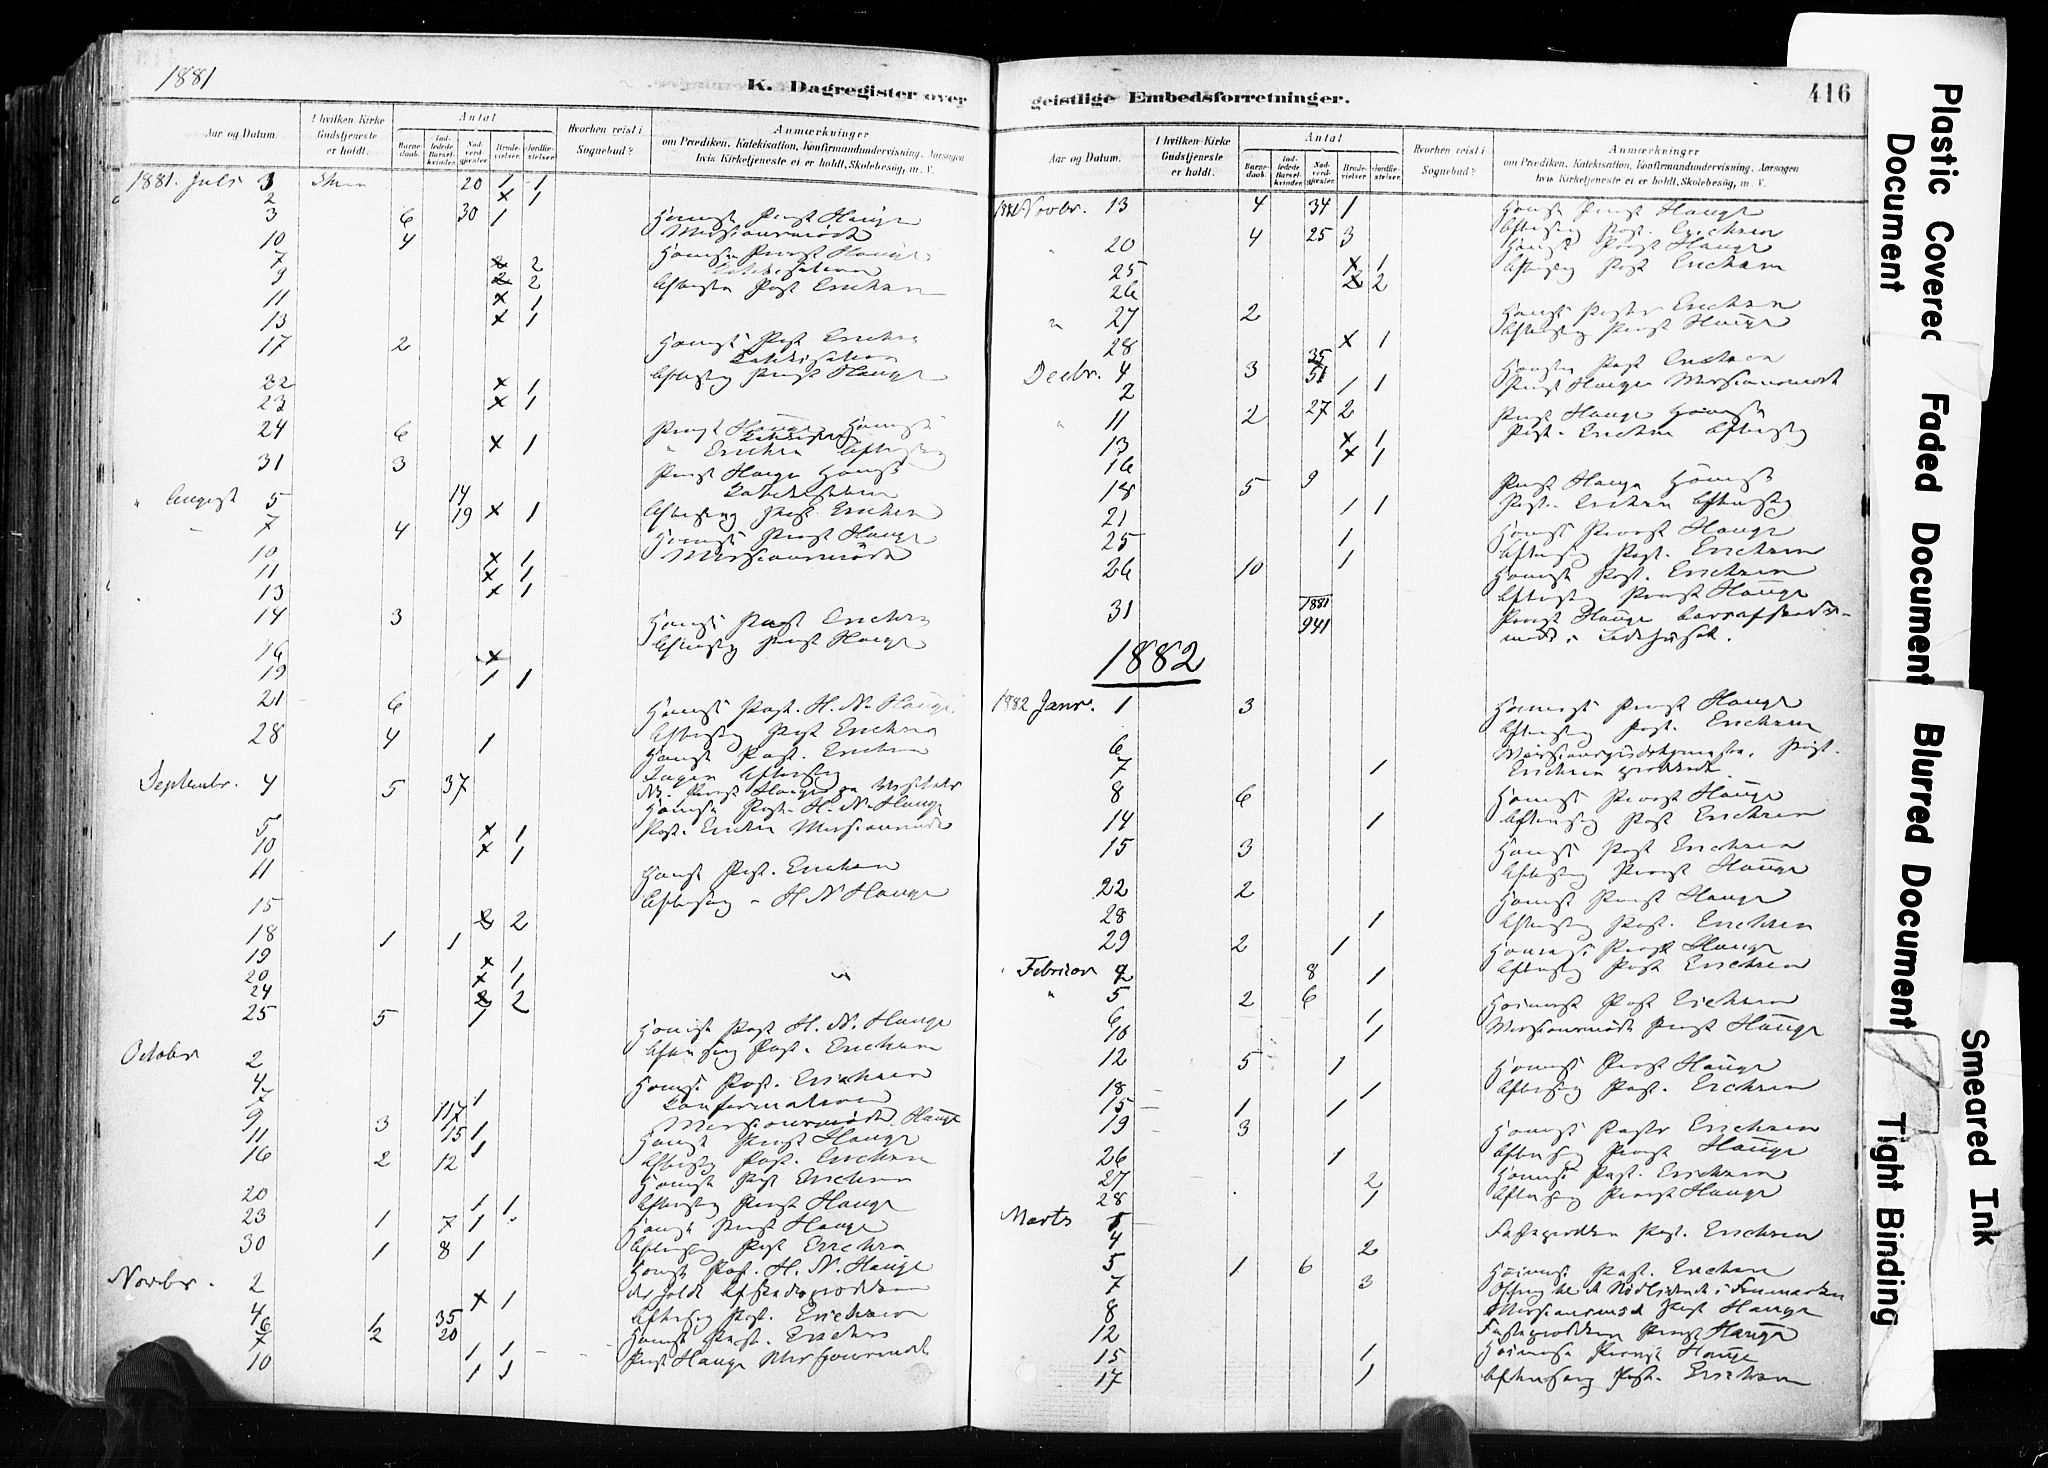 1881
K. Dagregister over
Aar og Datum.
I hvilken Kirke Gudstjeneste er holdt.
Antal
Barnedaab.
Indledede Barselkvinder.
Nadverdgjæster.
Brudevielser.
Jordfæstelser.
Hvorhen reist i Sognebud?
Anmærkninger
om Prædiken, Katekisation, Konfirmandundervisning, Aarsagen
hvis Kirketjeneste ei er holdt, Skolebesøg, m. V.
1881. Juli 3 20 1 1
2 x 1
3 6 30 1 Høimesse Provst Hauge
10 4 Missionsmøde
7 2 2 Høimesse Provst Hauge
Katekisation
9 2 2 Aftensang Past. Erichsen
11 x 1
13 x 1
17 2 Høimesse Past. Erichsen
Katekisation
22 x 1 Aftensang Provst Hauge
23 x 1
24 6 Provst Hauge Høimesse
Katekisation
x 1 " Erichsen Aftensang
31 3 Provst Hauge Høimesse
Katekisation
" August 5 14 x 1 Aftensang Past. Erichsen
7 4 19 Høimesse Provst Hauge
10 x 1 Missionsmøde
11 x 1
13 x 1
14 3 Høimesse Past Erichsen
Aftensang Provst Hauge
16 x
19 1 1
21 6 Høimesse Past. H. N. Hauge
Aftensang Past Erichsen
28 4 1 Høimesse Past. Erichsen
Ingen Aftensang
Septembr. 4 5 37
Høimesse Past. H. N. Hauge
5 x 1 Past. Erichsen Missionsmøde
10 x 1
11 Høimesse Past. Erichsen
Aftensang " H N Hauge
15 2 2
18 1 1
19 x 1
20 x 1
24 2 2
25 5 1 Høimesse Past H. N. Hauge
Aftensang Past. Erichsen
October 2 Høimesse Past. Erichsen
4 Konfirmation
7 1 Missionsmøde. Hauge
9 3 117 Høimesse Provst Hauge
11 15 1 Aftensang Past. Erichsen
16 2 12 1 Høimesse Past Erichsen
20 1 1 Aftensang Provst Hauge
23 1 7 1 Høimesse Provst Hauge
Aftensang Past Erichsen
30 1 8 1 Høimesse Past. H. N. Hauge
Novbr. 2 x 1
4 Aftensang Past. Erichsen
6 1 2 35 20 Høimesse Past. Erichsen
7 1 1 Provst Hauge Missionsmøde
10 1 1
geistlige Embedsforretninger.
416
Aar og Datum.
I hvilken Kirke Gudstjeneste er holdt.
Antal
Barnedaab.
Indledede Barselkvinder.
Nadverdgjæster.
Brudevielser.
Jordfæstelser.
Hvorhen reist i Sognebud?
Anmærkninger
om Prædiken, Katekisation, Konfirmandundervisning, Aarsagen
hvis Kirketjeneste ei er holdt, Skolebesøg, m. V.
1881 Novbr. 13 4 34 1 Høimesse Provst Hauge
Aftensang Past. Erichsen
" 20 4 25 3 Høimesse Provst Hauge
25 x 1 Aftensang Past Erichsen
26 2 2
" 27 2 Høimesse Pastor Erichsen
Aftensang Provst Hauge
28 x 1
Decbr. 4 3 35 51 Høimesse Past Erichsen
2 1 1 Provst Hauge Missionsmøde
" 11 2 27 2 Provst Hauge Høimesse
13 x 1 Past. Erichsen Aftensang
16 x 1
18 5 9 Provst Hauge Høimesse
21 1 1 Past. Erichsen Aftensang
25 1 Høimesse Provst Hauge
Aftensang Past. Erichsen
26 10 1 Høimesse Past. Erichsen
Aftensang Provst Hauge
31 1881 941 Provst Hauge
1882
1882 Janr. 1 3 Høimesse Provst Hauge
Aftensang Past. Erichsen
6 Missionsgudstjeneste. Past.
7 1 Erichsen
8 6 Høimesse Provst Hauge
14 1 Aftensang Past Erichsen
15 3 Høimesse Past Erichsen
Aftensang Provst Hauge
22 2 Høimesse Provst Hauge
28 1 Aftensang Past. Erichsen
29 2 1 Høimesse Provst Hauge
" Februar 2 8 1 Aftensang Past Erichsen
" 5 2 6 Høimesse Past Erichsen
6 1 Missionsmøde Provst Hauge
10 1
12 5 1 Høimesse Provst Hauge
18 1 Aftensang Past. Erichsen
15 1 1
19 3 Høimesse Pastor Erichsen
Aftensang Provst Hauge
26 1 Høimesse Past. Erichsen
27 2 Aftensang Provst Hauge
28 1
Marts 1 Fasteprædiken Past. Erichsen
4 2
5 1 6 Høimesse Past. Erichsen
7 3 Nødlidende i Finmarken
8 Missionsmøde Provst Hauge
12 Fasteprædiken Provst Hauge
15 1 Høimesse Provst Hauge
17 1 Aftensang Past. Erichsen
Plastic Covered Document
Faded Document
Blurred Document
Smeared Ink
Tight Binding